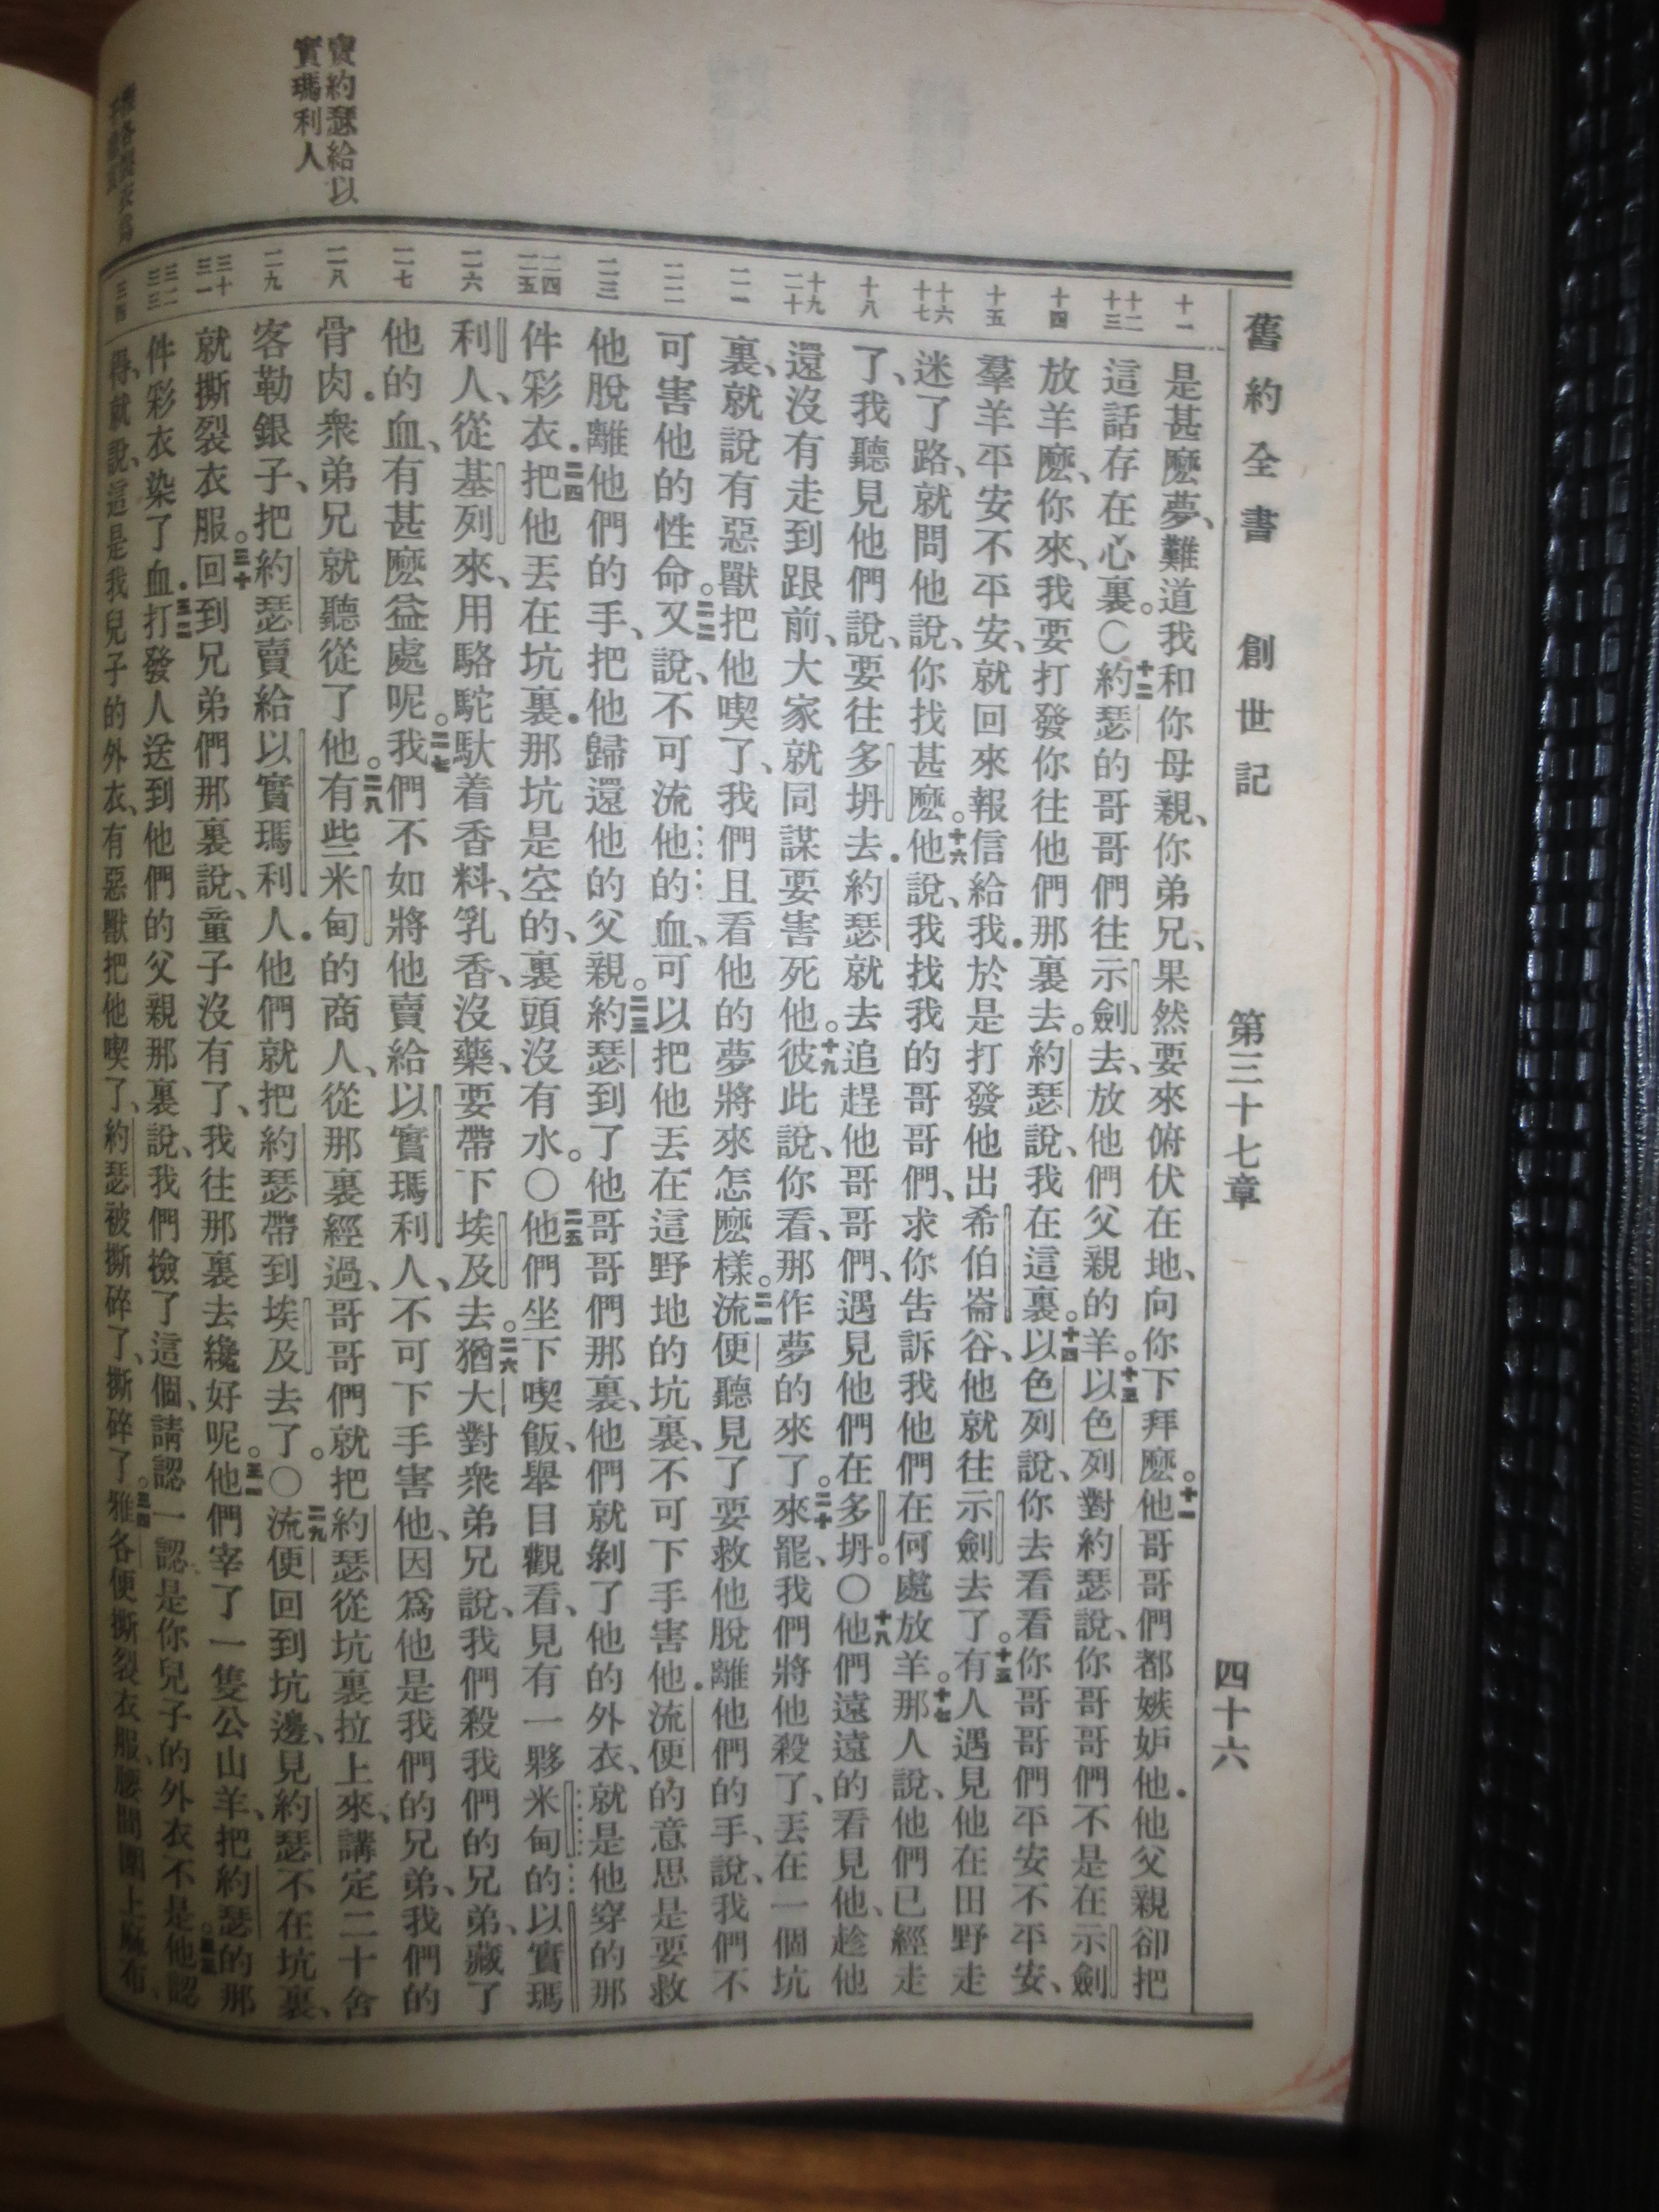 舊約全書 創世記 第三十七章 四十六
十一
是甚麼夢、難道我和你母親、你弟兄、果然要來俯伏在地、向你下拜麼。十一他哥哥們都嫉妒他．他父親卻把
十二 十三
這話存在心裏。〇十二約瑟的哥哥們往示劍去、放他們父親的羊。十三以色列對約瑟說、你哥哥們不是在示劍
十四
放羊麼、你來、我要打發你往他們那裏去。約瑟說、我在這裏。十四以色列說、你去看看你哥哥們平安不平安、
十五
羣羊平安不平安、就回來報信給我．於是打發他出希伯崙谷、他就往示劍去了。十五有人遇見他在田野走
十六 十七
迷了路、就問他說、你找甚麼。十六他說、我找我的哥哥們、求你告訴我他們在何處放羊。十七那人說、他們已經走
十八
了、我聽見他們說、要往多坍去．約瑟就去追趕他哥哥們、遇見他們在多坍。〇十八他們遠遠的看見他、趁他
十九 二十
還沒有走到跟前、大家就同謀要害死他。十九彼此說、你看、那作夢的來了。二十來罷、我們將他殺了、丟在一個坑
二一
裏、就說有惡獸把他喫了、我們且看他的夢將來怎麼樣。二一流便聽見了要救他脫離他們的手、說、我們不
二二
可害他的性命。二二又說、不可流他的血、可以把他丟在這野地的坑裏、不可下手害他．流便的意思是要救
二三
他脫離他們的手、把他歸還他的父親。二三約瑟到了他哥哥們那裏、他們就剝了他的外衣、就是他穿的那
二四 二五
件彩衣．二四把他丟在坑裏．那坑是空的、裏頭沒有水。〇二五他們坐下喫飯、舉目觀看、見有一夥米甸的以實瑪
二六
利人、從基列來、用駱駝馱着香料、乳香、沒藥、要帶下埃及去。二六猶大對衆弟兄說、我們殺我們的兄弟、藏了
二七
他的血、有甚麼益處呢。二七我們不如將他賣給以實瑪利人、不可下手害他、因爲他是我們的兄弟、我們的
二八
骨肉．衆弟兄就聽從了他。二八有些米甸的商人、從那裏經過、哥哥們就把約瑟從坑裏拉上來、講定二十舍
二九
客勒銀子、把約瑟賣給以實瑪利人．他們就把約瑟帶到埃及去了。〇二九流便回到坑邊、見約瑟不在坑裏、
三十 三一
就撕裂衣服。三十回到兄弟們那裏說、童子沒有了、我往那裏去纔好呢。三一他們宰了一隻公山羊、把約瑟的那
三二 三三
件彩衣染了血．三二打發人送到他們的父親那裏說、我們撿了這個、請認一認是你兒子的外衣不是。三三他認
三四
得、就說、這是我兒子的外衣、有惡獸把他喫了、約瑟被撕碎了、撕碎了。三四雅各便撕裂衣服、腰間圍上麻布、
賣約瑟給以
實瑪利人